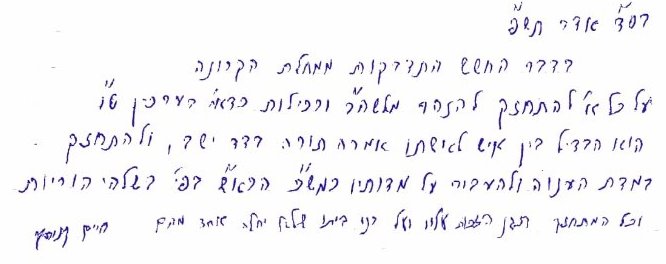 בסיד אדר תש"פ
בדבר החשש התדבקות ממחלת הקרונה
על כל א' להתחזק להזהר מלשה"ר ורכילות כדאי' בערכין ט"ו
הוא הבדיל בין איש לאישתו אמרה תורה בדד ישב, ולהתחזק
במדת הענוה ולהעביר על מדותיו כמש"כ הרא"ש בפי' בשלהי הוריות
וכל המתחזק תגן הזכות עליו ועל בני ביתו שלא יחלה אחד מהם חיים קניבסקי